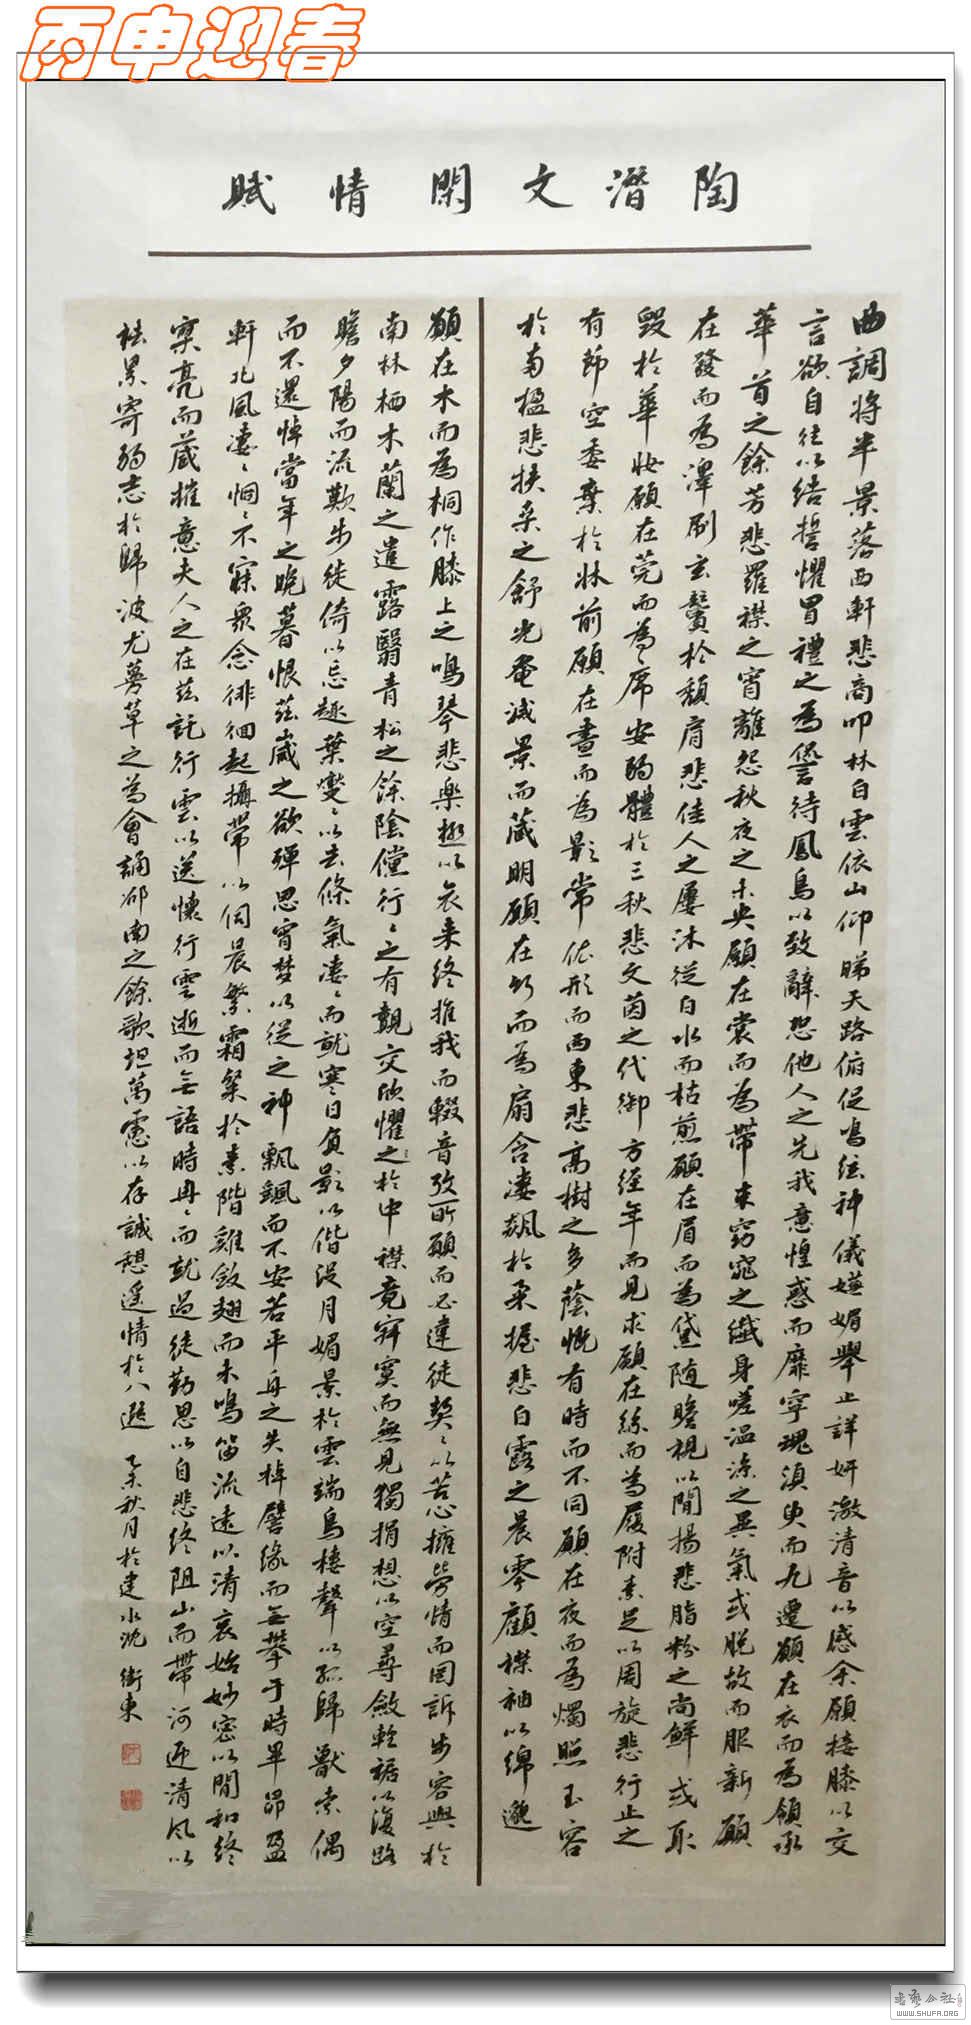 丙申迎春
陶潛文閑情賦
曲調將半景落西軒悲商叩林白雲依山仰睇天路俯促鳴絃神儀嫵媚舉止詳妍激清音以感余願接膝以交
言欲自往以結誓懼冒禮之為諐待鳳鳥以致辭恐他人之先我意惶惑而靡寧魂須臾而九遷願在衣而為領承
華首之餘芳悲羅襟之宵離怨秋夜之未央願在裳而為帶束窈窕之纖身嗟溫涼之異氣或脫故而服新願
在發而為澤刷玄鬢於頹肩悲佳人之屢沐從白水而枯煎願在眉而為黛隨瞻視以閒揚悲脂粉之尚鮮或取
毀於華妝願在莞而為席安弱體於三秋悲文茵之代御方經年而見求願在絲而為履附素足以周旋悲行止之
有節空委棄於牀前願在晝而為影常依形而西東悲高樹之多蔭慨有時而不同願在夜而為燭照玉容
於兩楹悲扶桑之舒光奄滅景而藏明願在竹而為扇含淒飆於柔握悲白露之晨零顧襟袖以綿邈
願在木而為桐作膝上之鳴琴悲樂極以哀來終推我而輟音攷所願而必違徒契々以苦心擁勞情而罔訴步容與於
南林栖木蘭之遺露翳青松之餘陰儻行々之有覿交欣懼之於中襟竟寂寞而無見獨捐想以空尋斂輕裾以復路
瞻夕陽而流歎步徙倚以忘趣葉燮々以去條氣淒々而就寒日負影以偕沒月媚景於雲端鳥棲聲以孤歸獸索偶
而不還悼當年之晚暮恨茲歲之欲殫思宵梦以從之神飄颻而不安若平舟之失棹譬緣而無攀于時畢昴盈
軒北風淒々恫々不寐眾念徘徊起攝帶以伺晨繁霜粲於素階雞斂翅而未鳴笛流遠以清哀始妙密以閒和終
寥亮而藏摧意夫人之在茲託行雲以送懷行雲逝而無語時冉々而就過徒勤思以自悲終阻山而帶河迎清風以
祛累寄弱志於歸波尤蔓草之為會誦邵南之餘歌坦萬慮以存誠憩遙情於八遐 乙未秋月於建水沈衛東
WWW.SHUFA.ORG